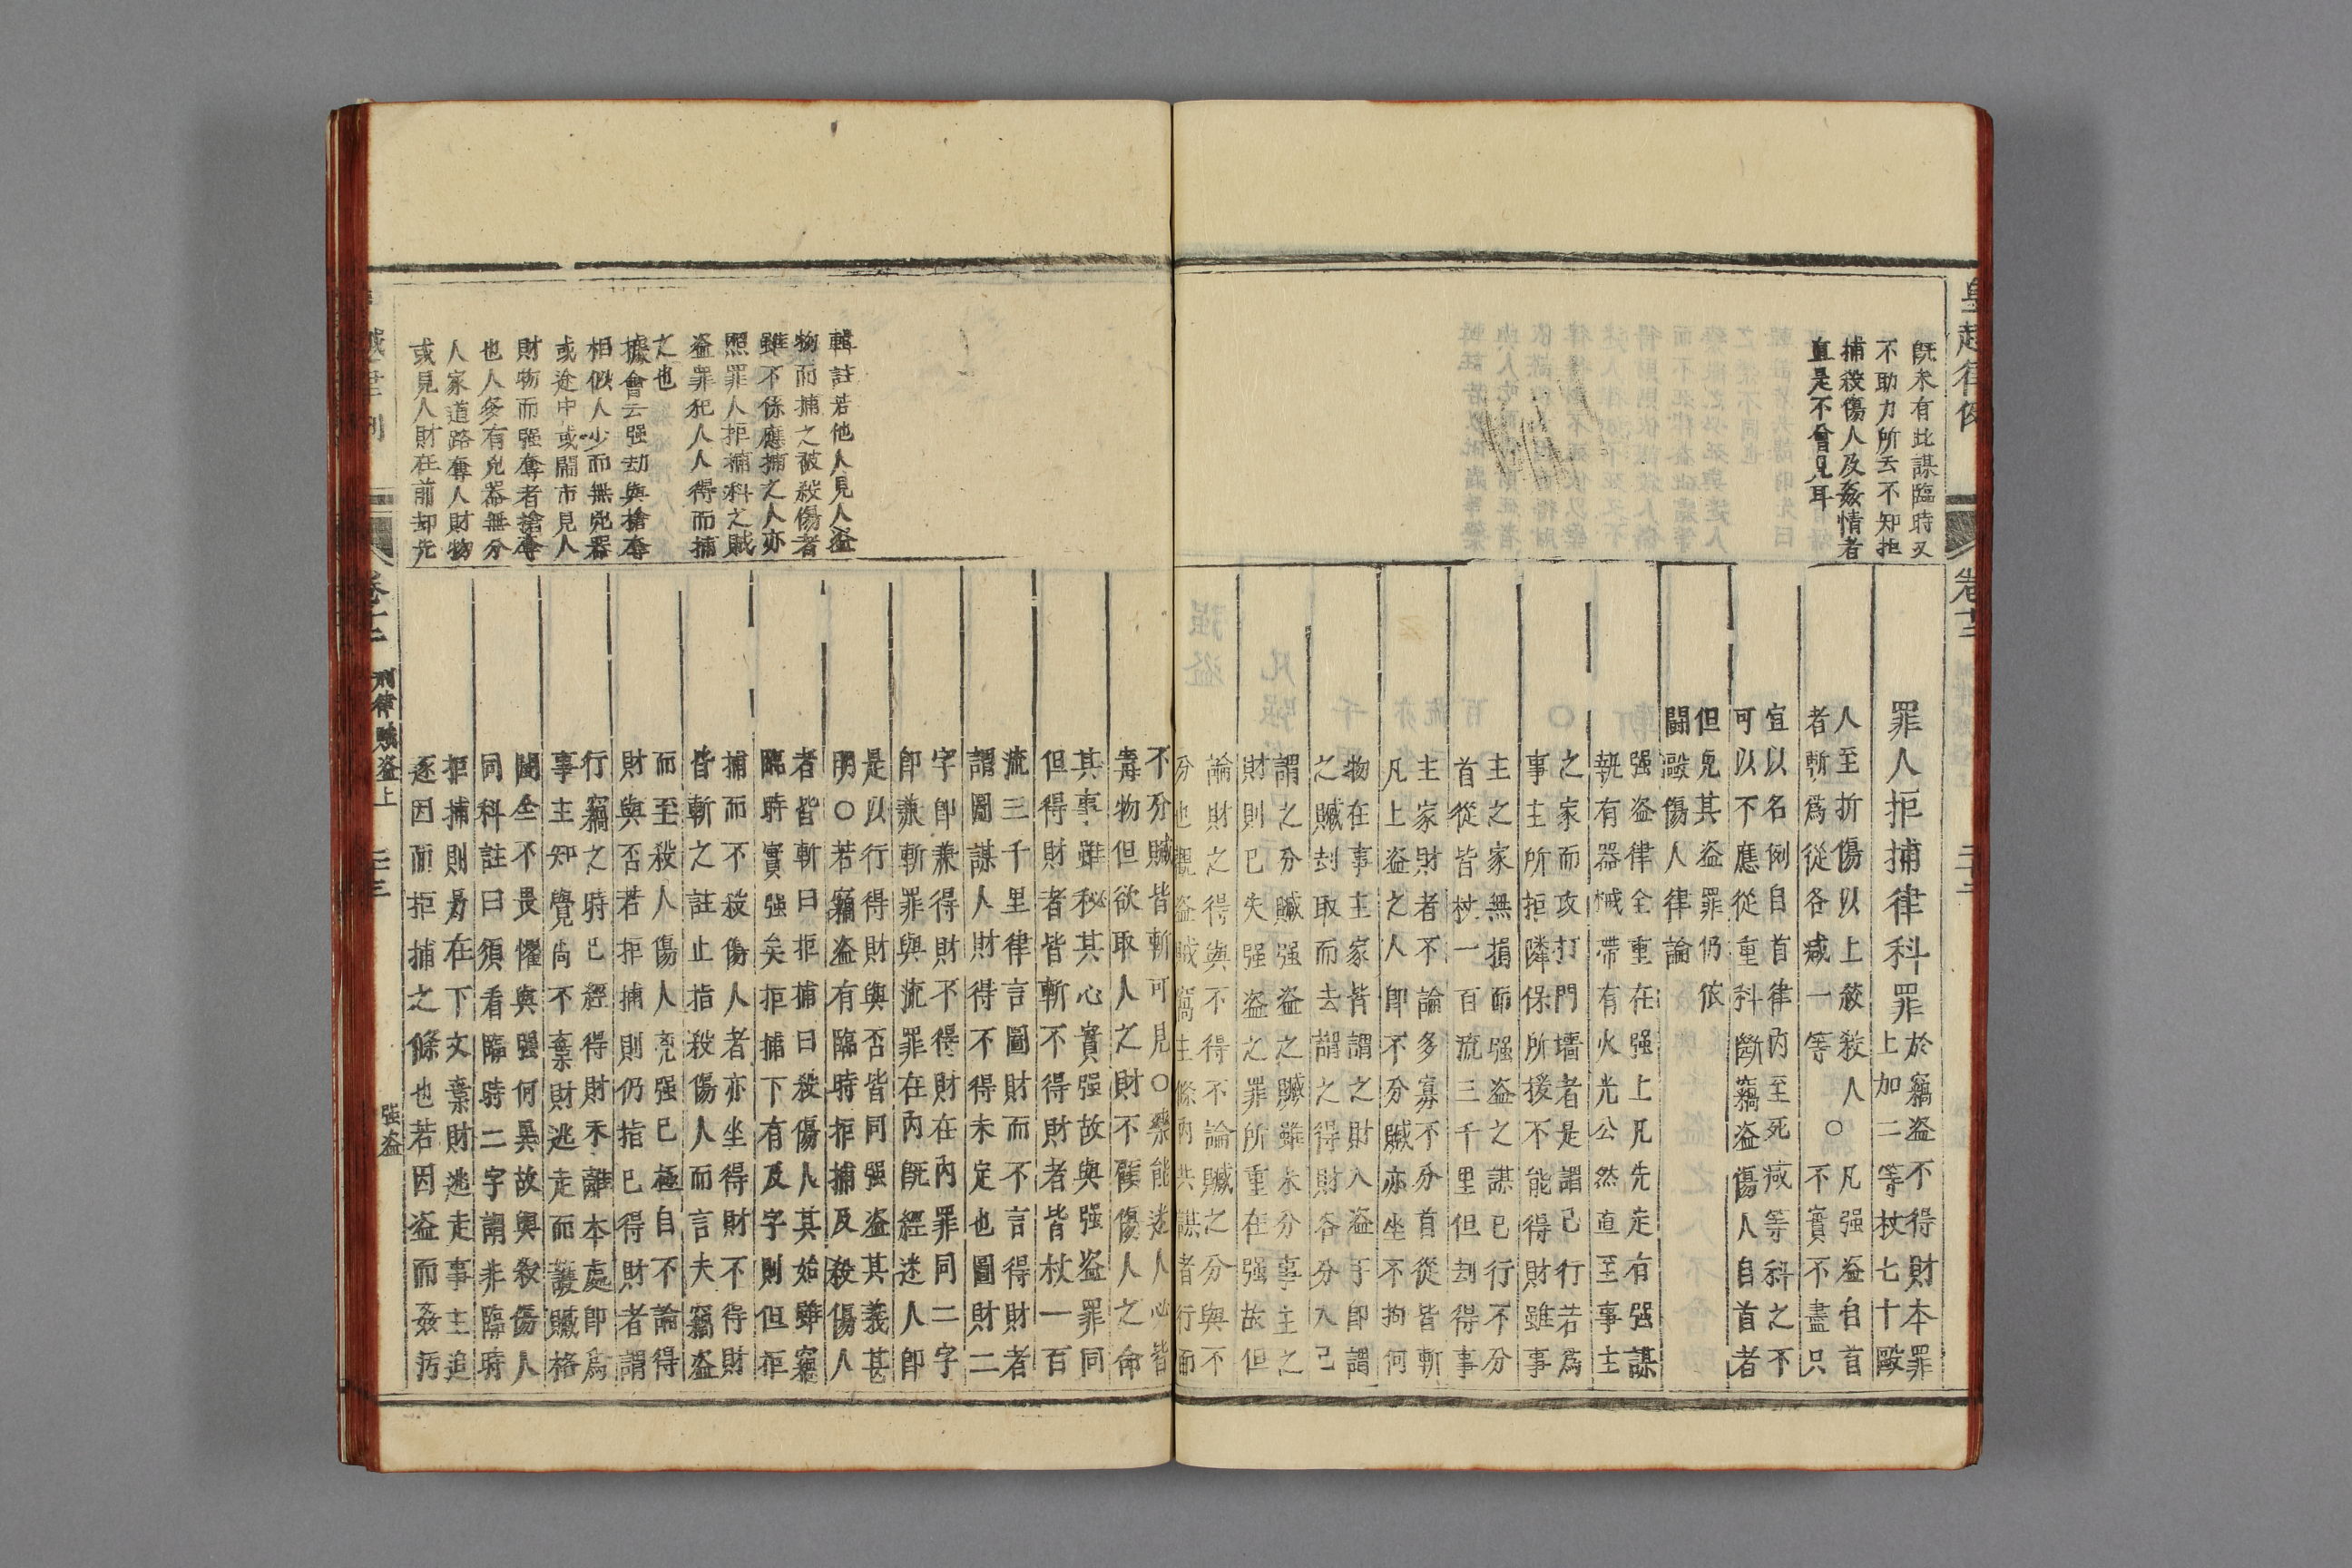 皇越律例 卷十二 二十二
既未有此謀臨時又
不助力所云不知拒
捕殺傷人及姦情者
直是不會見耳
罪人拒捕律科罪於竊盜不得財本罪
上加二等杖七十毆
人至折傷以上絞殺人○凡强盜自首
者斬爲從各减一等不實不盡只
宜以名例自首律內至死减等科之不
可以不應從重科斷竊盜傷人自首者
但免其盜罪仍依
鬭毆傷人律論
强盜律全重在强上凡先定有强謀
執有器械帶有火光公然直至事主
之家而攻打門墻者是謂已行若爲
事主所拒隣保所援不能得財雖事
主之家無損而强盜之謀已行不分
首從皆杖一百流三千里但刦得事
主家財者不論多寡不分首從皆斬
凡上盜之人卽不分贓亦坐不拘何
物在事主家皆謂之財入盜手卽謂
之贓刦取而去謂之得財各分入己
謂之分贓强盜之贓雖未分事主之
財則已失强盜之罪所重在强故但
論財之得與不得不論贓之分與不
分也觀盜賊窩主條內共謀者行而
輯註若他人見人盜
物而捕之被殺傷者
雖不係應捕之人亦
照罪人拒捕科之賊
盜罪犯人人得而捕
之也
據會云强劫與搶奪
相似人少而無兇器
或途中或鬧市見人
財物而强奪者搶奪
也人多有兇器無分
人家道路奪人財物
或見人財在前却先
不分贓皆斬可見○藥能迷人必皆
毒物但欲取人之財不顧傷人之命
其事雖秘其心實强故與强盜罪同
但得財者皆斬不得財者皆杖一百
流三千里律言圖財而不言得財者
謂圖謀人財得不得未定也圖財二
字卽兼得財不得財在內罪同二字
卽兼斬罪與流罪在內旣經迷人卽
是以行得財與否皆同强盜其義甚
明○若竊盜有臨時拒捕及殺傷人
者皆斬曰拒捕曰殺傷人其始雖竊
臨時實强矣拒捕下有及字則但拒
捕而不殺傷人者亦坐得財不得財
皆斬之註止指殺傷人而言夫竊盜
而至殺人傷人兇强已極自不論得
財與否若拒捕則仍指已得財者謂
行竊之時已經得財未離本處卽爲
事主知覺尚不棄財逃走而護贓格
鬭全不畏懼與强何異故與殺傷人
同科註曰須看臨時二字謂非臨時
拒捕則是在下文棄財逃走事主追
逐因而拒捕之條也若因盜而姦污
卷十二 刑律賊盜上 二十三 强盜